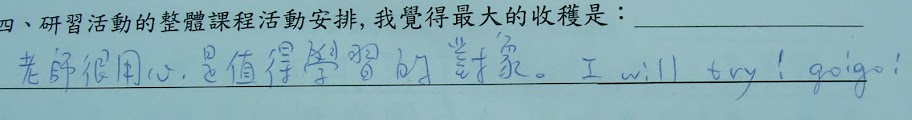 四、研習活動的整體課程活動安排,我覺得最大的收穫是：
老師很用心.是值得學習的對象。I will try! go!go!